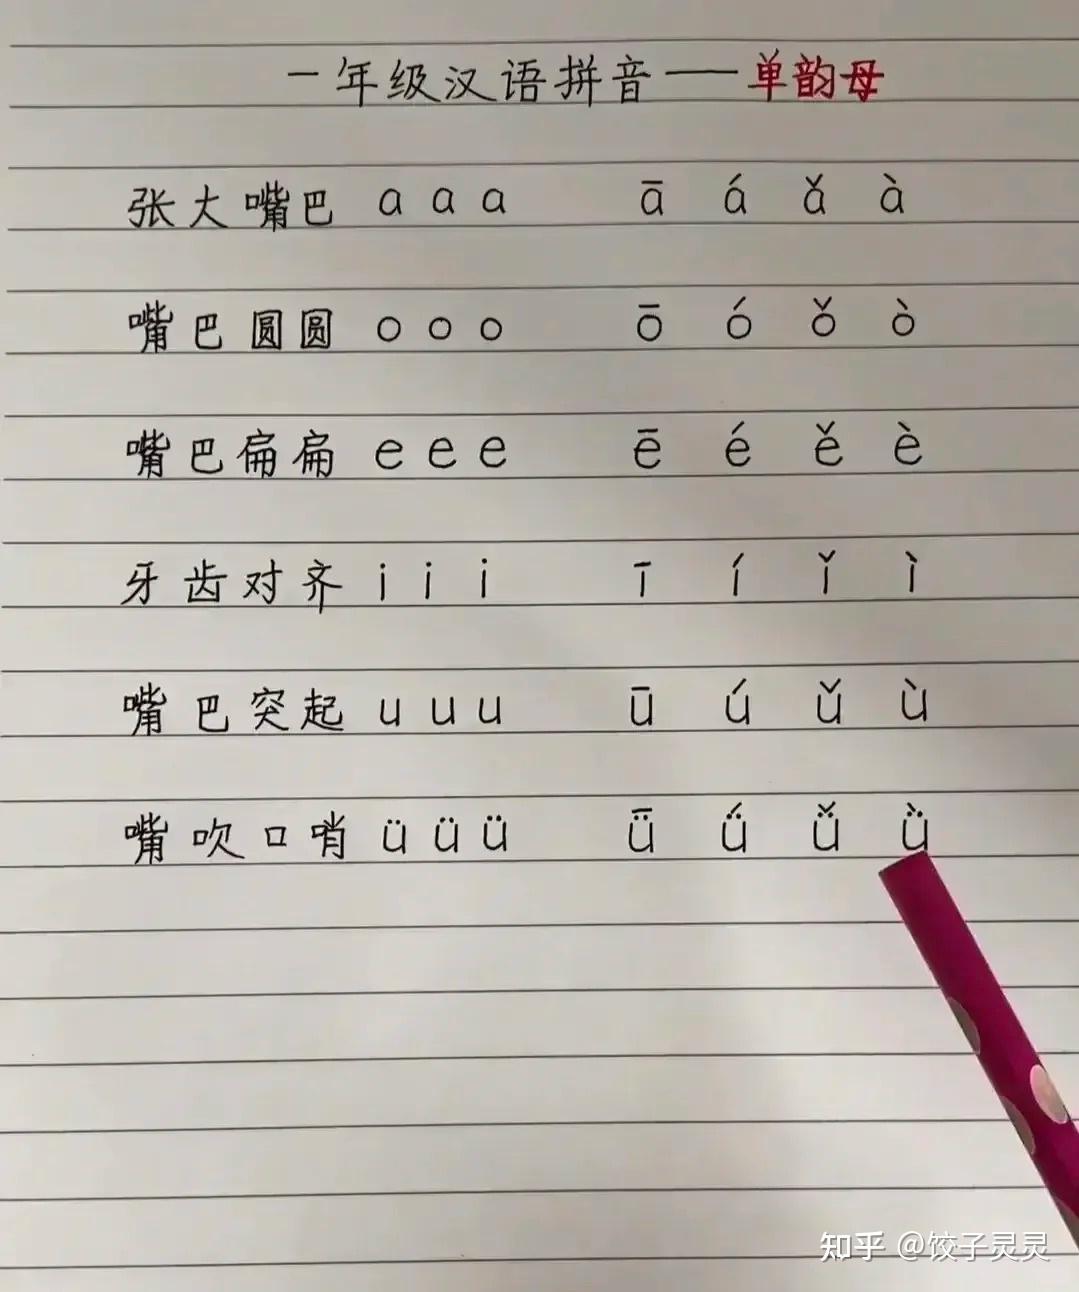 一年级汉语拼音——单韵母
张大嘴巴 a a a ā á ǎ à
嘴巴圆圆 o o o ō ó ǒ ò
嘴巴扁扁 e e e ē é ě è
牙齿对齐 i i i ī í ǐ ì
嘴巴突起 u u u ū ú ǔ ù
嘴吹口哨 ü ü ü ǖ ǘ ǚ ǜ
知乎 @饺子灵灵